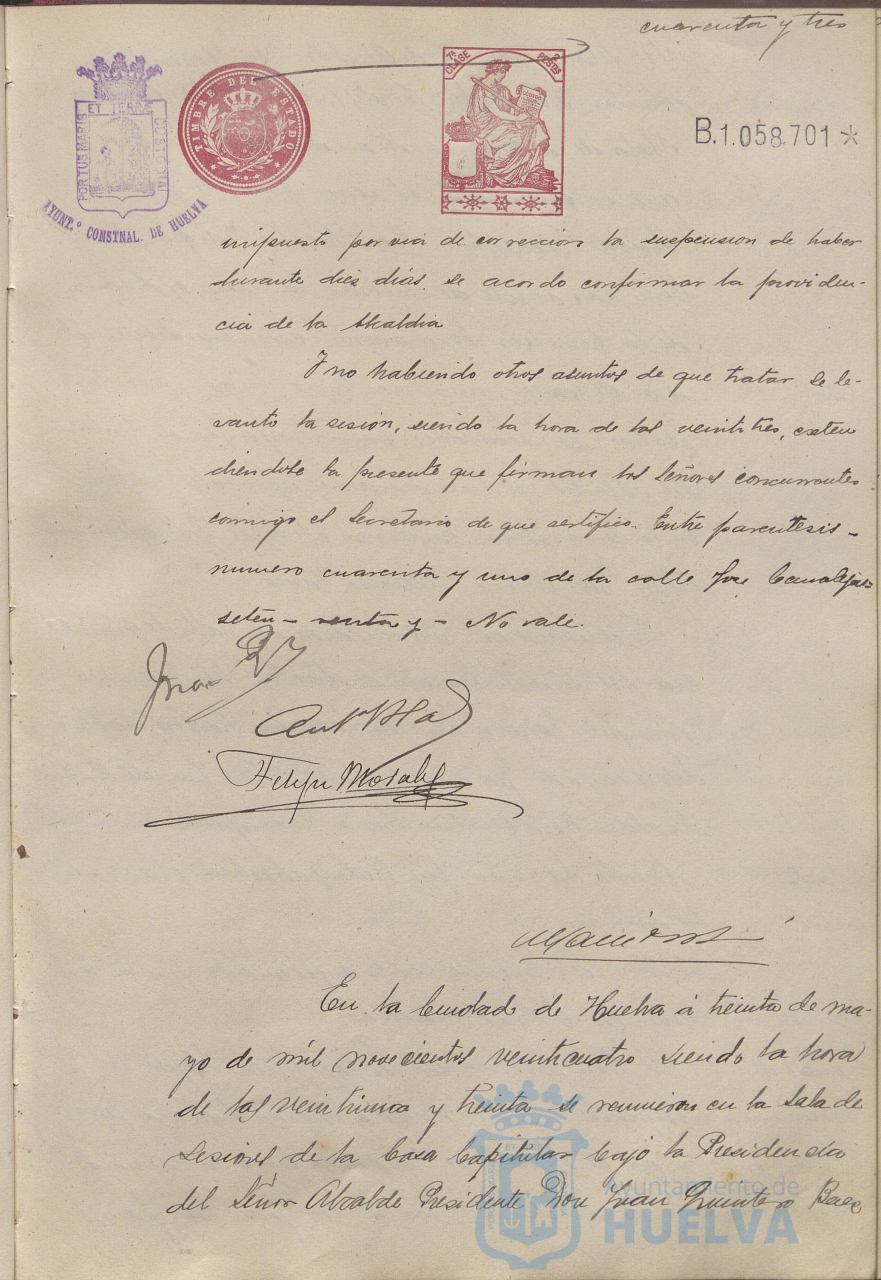 cuarenta y tres
7ª CLASE 2 PESETAS
TIMBRE DEL ESTADO
PORTUS MARIS ET TERRÆ CUSTODIA
AYUNT.º CONSTNAL. DE HUELVA
B.1.058.701*
impuesto por via de correccion la suspension de haber
durante diez dias, se acordo confirmar la providen-
cia de la Alcaldia
Y no habiendo otros asuntos de que tratar se le-
vanto la sesión, siendo la hora de las veintitres, exten
diendose la presente que firman los Señores concurrentes
conmigo el Secretario de que certifico. Entre parentesis -
numero cuarenta y uno de la calle Jose Canalejas =
seten - venta y - No vale.
Felipe Morales
En la Ciudad de Huelva á treinta de ma-
yo de mil novecientos veinticuatro siendo la hora
de las veintiuna y treinta se reunieron en la Sala de
Sesiones de la Casa Capitular bajo la Presidencia
del Señor Alcalde Presidente Don Juan Quintero Baez
Ayuntamiento de
HUELVA